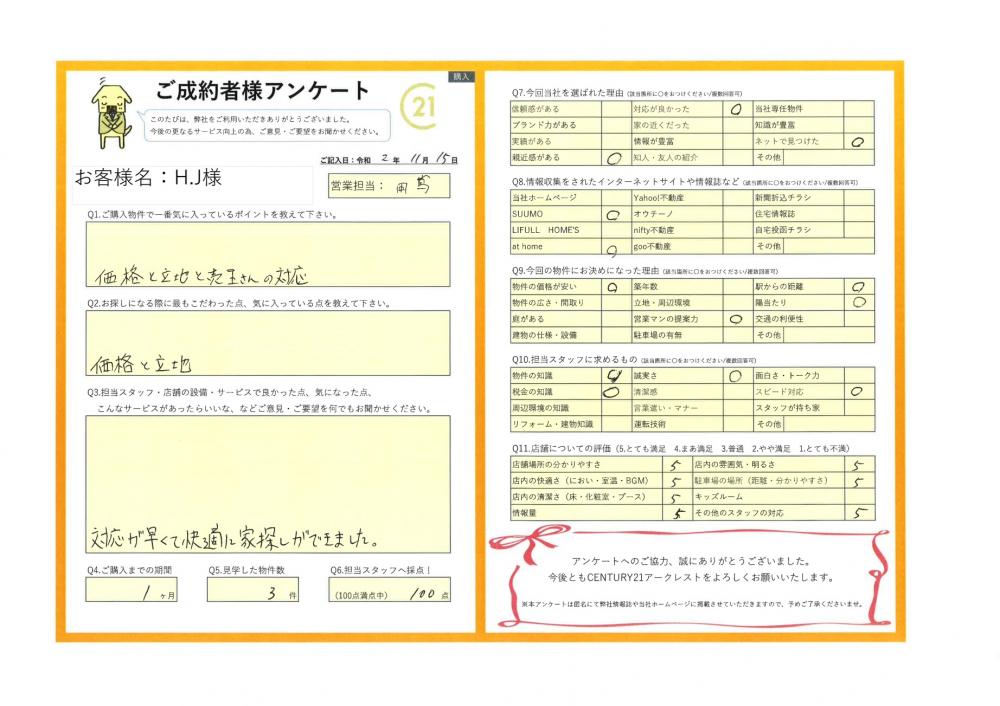 購入
ご成約者様アンケート
このたびは、弊社をご利用いただきありがとうございました。
今後の更なるサービス向上の為、ご意見・ご要望をお聞かせください。
21
ご記入日：令和 2 年 11 月 15 日
お客様名：H.J様
営業担当：
Q1.ご購入物件で一番気に入っているポイントを教えて下さい。
価格と立地と売主さんの対応
Q2.お探しになる際に最もこだわった点、気に入っている点を教えて下さい。
価格と立地
Q3.担当スタッフ・店舗の設備・サービスで良かった点、気になった点、
こんなサービスがあったらいいな、などご意見・ご要望を何でもお聞かせください。
対応が早くて快適に家探しができました。
Q4.ご購入までの期間 Q5.見学した物件数 Q6.担当スタッフへ採点！
1 ヶ月 3 件 (100点満点中) 100 点
Q7.今回当社を選ばれた理由 (該当箇所に〇をおつけください/複数回答可)
信頼感がある 対応が良かった 〇 当社専任物件
ブランド力がある 家の近くだった 知識が豊富
実績がある 情報が豊富 ネットで見つけた 〇
親近感がある 〇 知人・友人の紹介 その他
Q8.情報収集をされたインターネットサイトや情報誌など (該当箇所に〇をおつけください/複数回答可)
当社ホームページ Yahoo!不動産 新聞折込チラシ
SUUMO 〇 オウチーノ 住宅情報誌
LIFULL HOME'S nifty不動産 自宅投函チラシ
at home 〇 goo不動産 その他
Q9.今回の物件にお決めになった理由 (該当箇所に〇をおつけください/複数回答可)
物件の価格が安い 〇 築年数 駅からの距離 〇
物件の広さ・間取り 立地・周辺環境 陽当たり 〇
庭がある 営業マンの提案力 〇 交通の利便性
建物の仕様・設備 駐車場の有無 その他
Q10.担当スタッフに求めるもの (該当箇所に〇をおつけください/複数回答可)
物件の知識 〇 誠実さ 〇 面白さ・トーク力
税金の知識 〇 清潔感 スピード対応 〇
周辺環境の知識 言葉遣い・マナー スタッフが持ち家
リフォーム・建物知識 運転技術 その他
Q11.店舗についての評価 (5.とても満足 4.まあ満足 3.普通 2.やや満足 1.とても不満)
店舗場所の分かりやすさ 5 店内の雰囲気・明るさ 5
店内の快適さ（におい・室温・BGM） 5 駐車場の場所（距離・分かりやすさ） 5
店内の清潔さ（床・化粧室・ブース） 5 キッズルーム
情報量 5 その他のスタッフの対応 5
アンケートへのご協力、誠にありがとうございました。
今後ともCENTURY21アークレストをよろしくお願いいたします。
※本アンケートは匿名にて弊社情報誌や当社ホームページに掲載させていただきますので、予めご了承くださいませ。